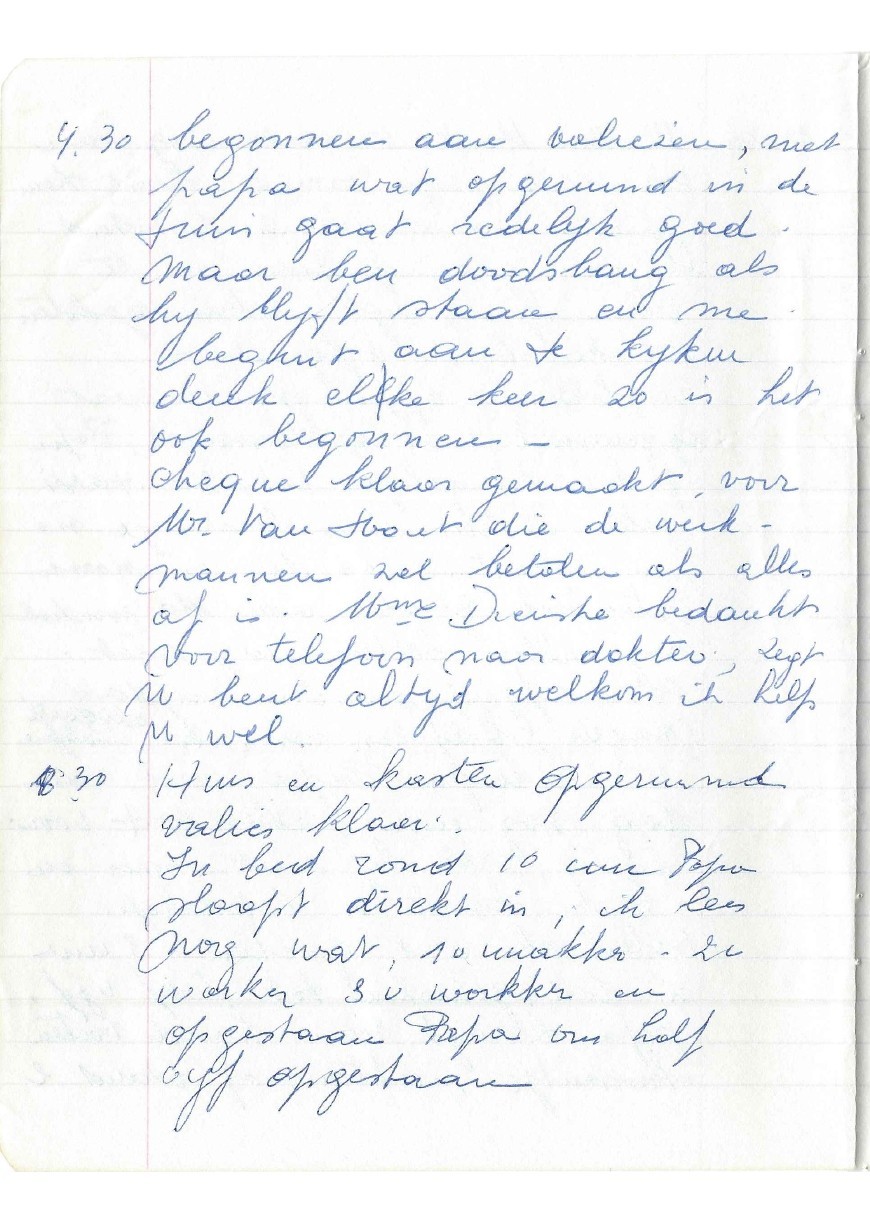 4.30 begonnen aan valiezen, met
papa wat opgeruimd in de
tuin gaat redelijk goed.
Maar ben doodsbang als
hij blijft staan en me
begint aan te kijken
denk elke keer zo is het
ook begonnen -
cheque klaar gemaakt, voor
Mr. Van die de werk-
mannen zal betalen als alles
af is Mme bedankt
voor telefoon naar dokter, zegt
U bent altijd welkom ik help
U wel
8.30 Huis en kasten opgeruimd
valies klaar.
In bed rond 10 uur Papa
slaapt direkt in, ik lees
nog wat, 1 u wakker - 2 u
wakker 3 u wakker en
opgestaan Papa om half
vijf opgestaan